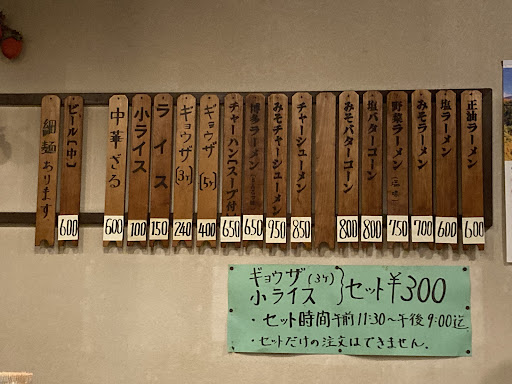 正油ラーメン 600
塩ラーメン 600
みそラーメン 700
野菜ラーメン 750
塩バターコーン 800
みそバターコーン 800
チャーシューメン 850
みそチャーシューメン 950
博多ラーメン 650
チャーハン〔スープ付〕 650
ギョウザ〔5ヶ〕 400
ギョウザ〔3ヶ〕 240
ライス 150
小ライス 100
中華ざる 600
ビール【中】 600
細麺あります
ギョウザ(3ケ)
小ライス } セット ¥300
・セット時間 午前11:30〜午後9:00迄
・セットだけの注文はできません.